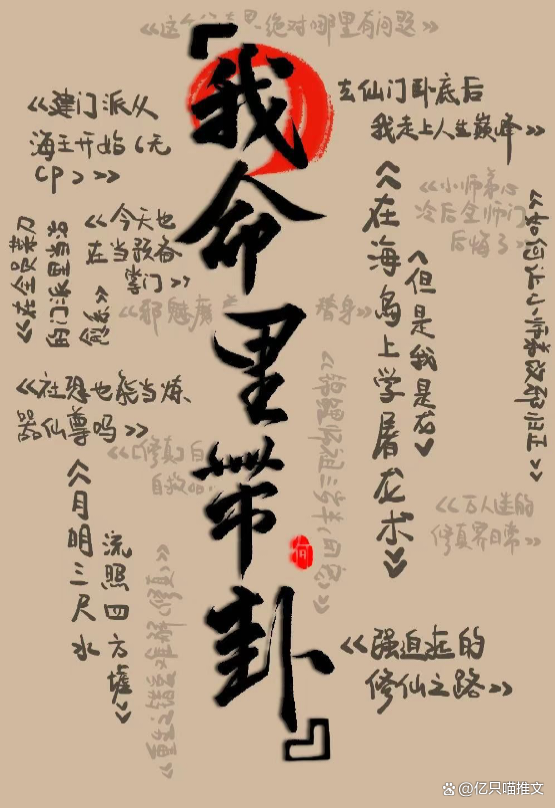 『我命里带卦』
绝对哪里有问题》
《建门派从
海王开始(无
CP)》
去仙门卧底后
我走上人生巅峰》
《在海岛上学屠龙术》
《但是我是石》
《小师弟心
冷后全师门
后悔了》
《今天也
在当预备
掌门》
《邪魅魔
替身》
《社恐也能当炼
器仙尊吗》
《[修真]白
《月明三尺水
流照四方墟》
《万人迷的
修真界日常》
《强迫症的
修仙之路》
何
亿只喵推文